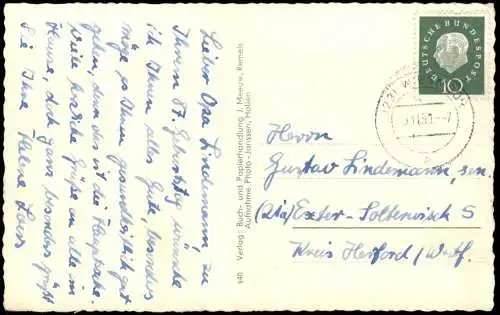 Lieber Opa Lindemann, zu
Ihrem 87. Geburtstag wünsche
ich Ihnen alles Gute, besonders
möge es Ihnen gesundheitlich gut
gehen, denn das ist die Hauptsache.
Viele herzliche Grüße an alle im
Hause, doch ganz besonders grüßt
Sie Ihre
540 Verlag: Buch- und Papierhandlung J. Meeuw, Remels
Aufnahme Photo-Janssen, Hollen
DEUTSCHE BUNDESPOST
10
Herrn
Gustav Lindemann, sen.
(21a) Exter-Solterwisch 5
Kreis Herford / Westf.